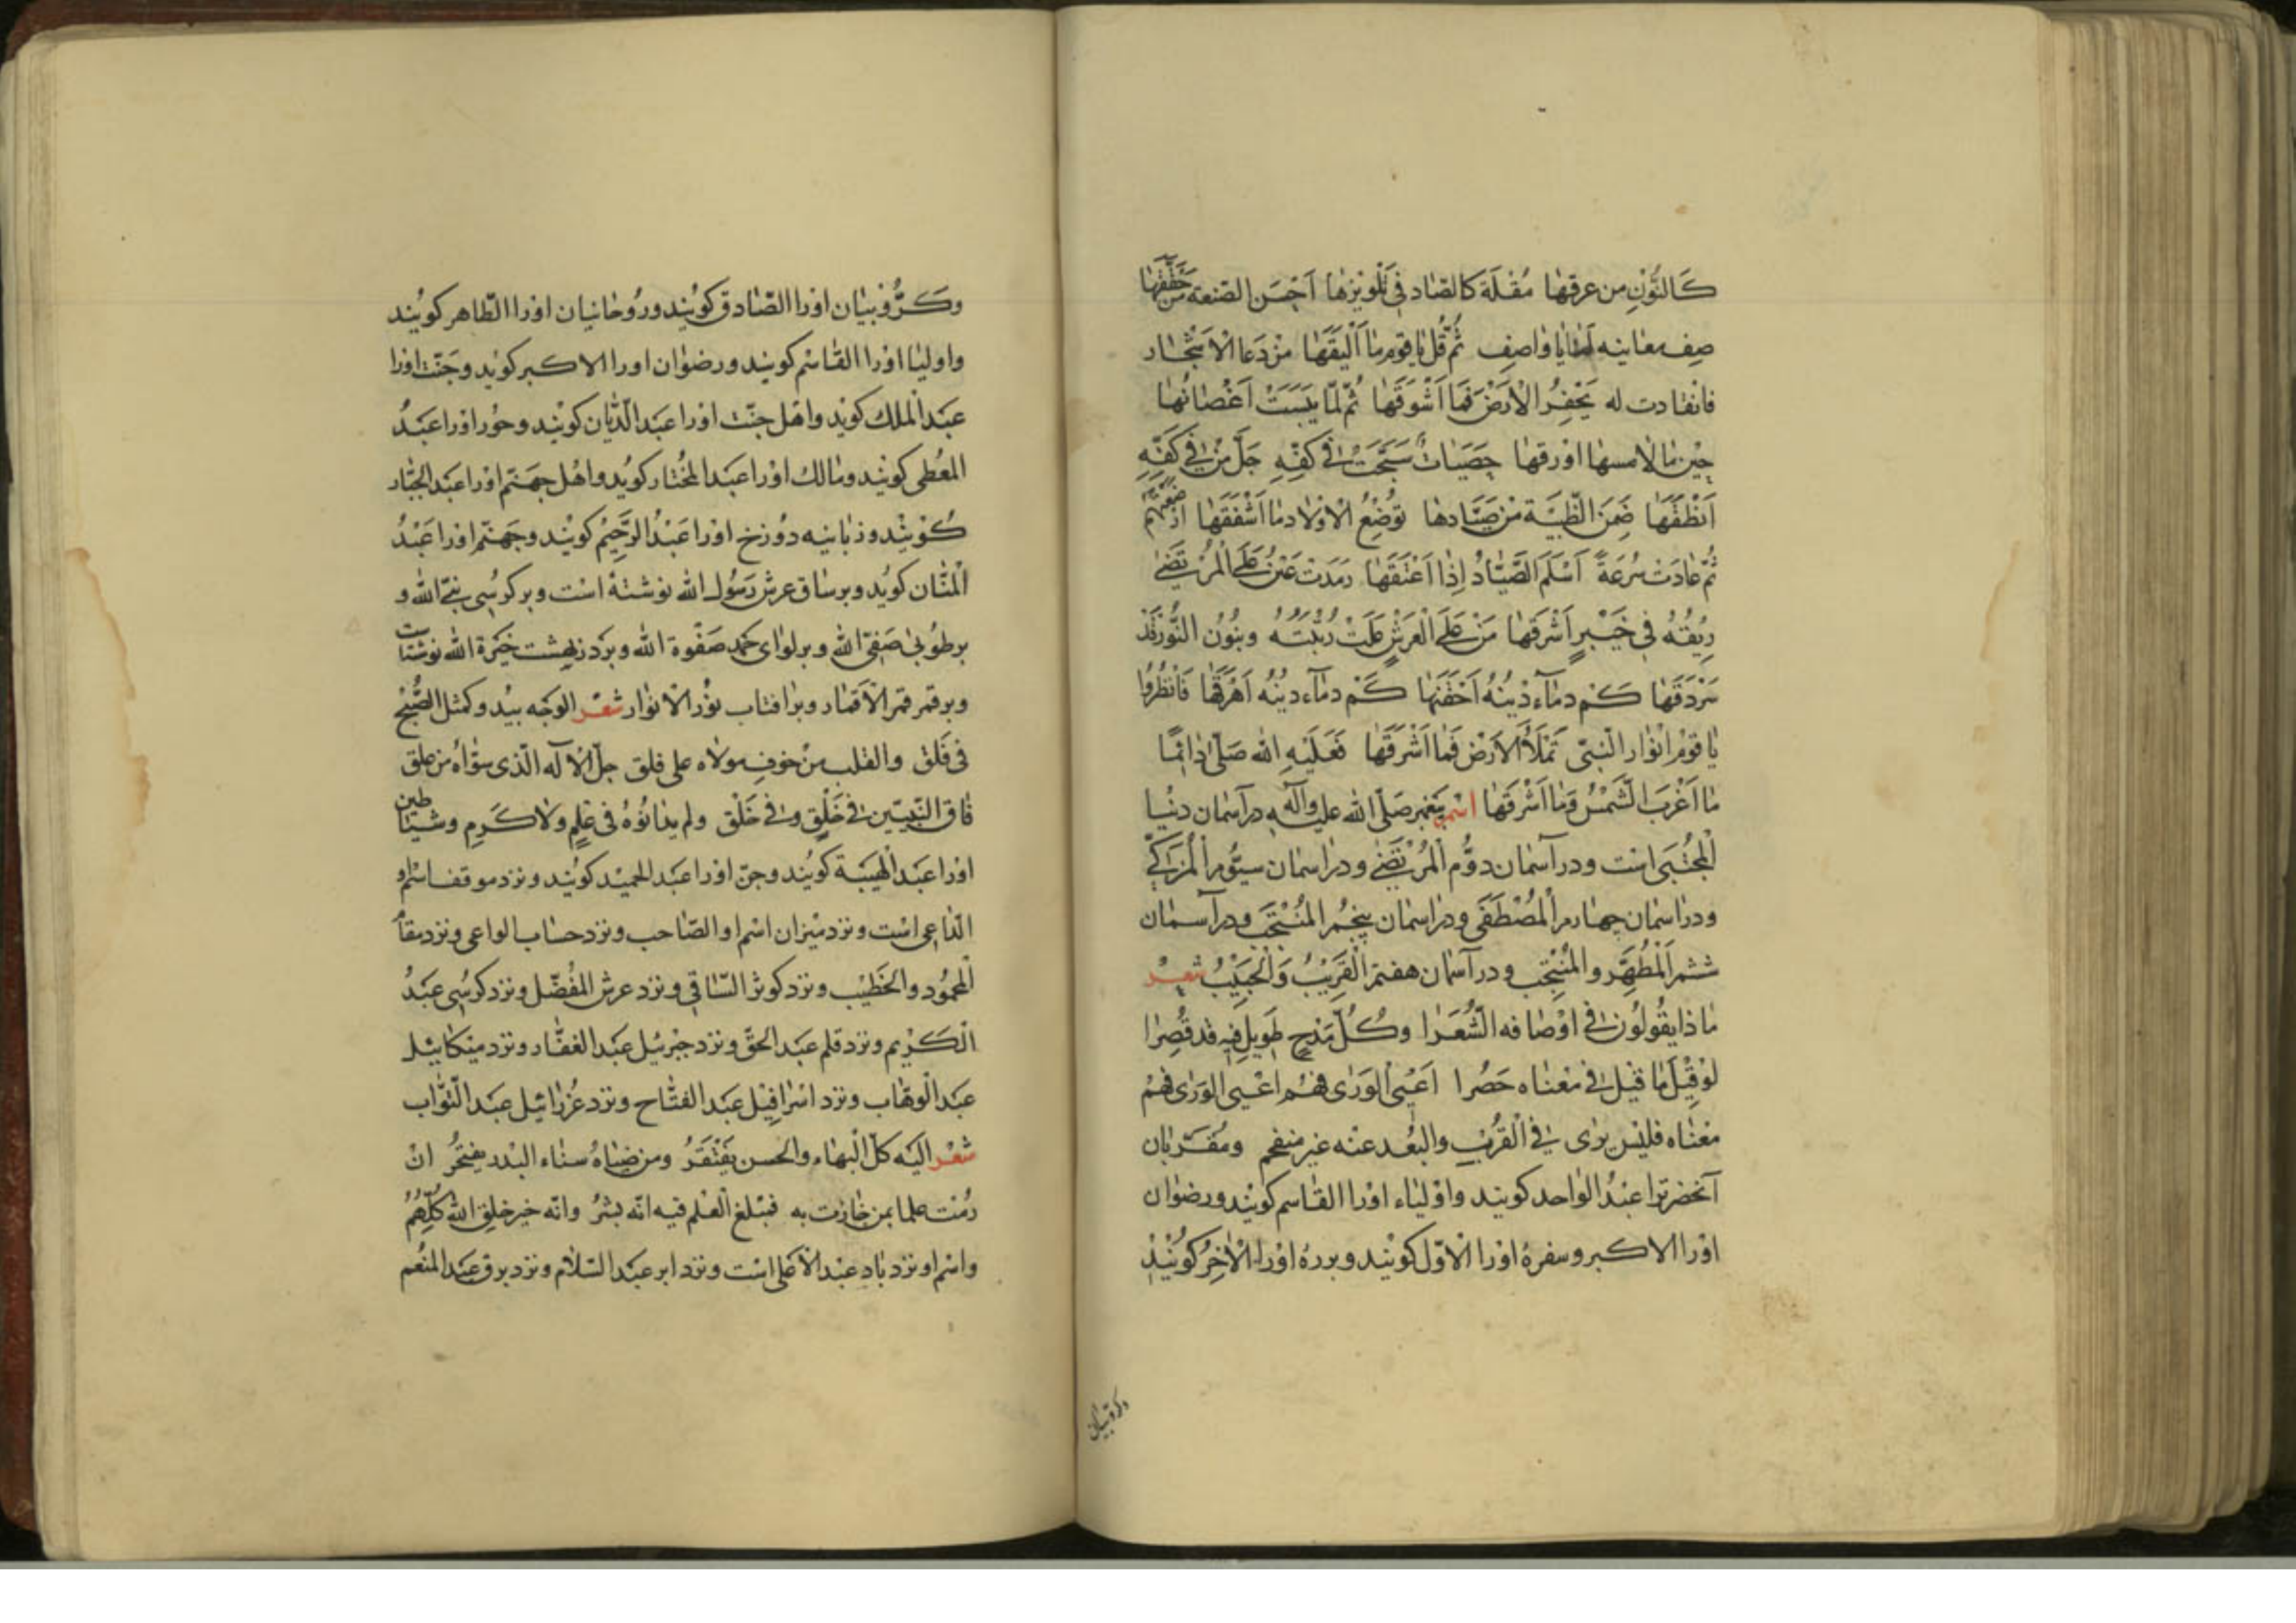 كَالنُّوْنِ من عرقها مُقْلَة كالصّاد فی تَلْویزها اَحْسَن الصّنعة من حَقَّقَها
صِف معاینه یا واصِف ثُمّ قُل یا قوم ما اَلْیَقَها مَنْ دَعا الاَشْجار
فانقادت له یَحْفِرُ الْاَرْضَ فَما اَشْوَقَها ثُمّ لَمّا یَبَسَتْ اَغْصانُها
حین ما لامسها اوْرقها حَصَیَاتٌ سَبَّحَتْ فی كَفِّهِ جَلَّ مَنْ فی كَفِّهِ
اَنْطَقَها ضَمِنَ الظَّبْیَة مِنْ صَیّادها تُوضِعُ الْاَوْلاد ما اَشْفَقَها
ثُمّ عادَتْ سُرْعَةً اَسْلَمَ الصَّیّادُ اِذا اَعْتَقَها رَمَدَتْ عَیْنُ عَلَی الْمُرْتَضی
رِیْقُهُ فی خَیْبَرٍ اَشْرَقَها مَنْ عَلَی الْعَرْشِ عَلَتْ رُتْبَتُهُ وبنُونُ النُّوْرِ قَدْ
سَرْدَقَها كَمْ دِمآء دیْنُهُ اَحْقَنَها كَمْ دِمآء دیْنُهُ اَهْرَقَها فَانْظُرُوا
یا قوْم انْوار النّبیّ تَمْلَأُ الاَرْض فَما اَشْرَقَها فَعَلَیْهِ الله صَلّی دائِمًا
ما اَغْرَبَ الشَّمْسُ وَما اَشْرَقَها اسْم پیغمبر صَلّی الله علیه وآله در آسمان دنیا
الْمُجْتَبَی است و در آسمان دوُّم الْمُرْتَضی و در اسمان سیّوم الْمُزَكّی
و در اسمان چهارم الْمُصْطَفَی و در اسمان پنجم الْمُنْتَجَب و در آسمان
ششم الْمُطَهَّر و المُنْتَجَب و در آسمان هفتم الْقَرِیْبُ وَالْحَبِیْبُ شعر
ما ذا یقُولُون فی اوْصافه الشُّعَرا وكُلّ مَدْحٍ طَوِیلٍ فیه قد قُصِرا
لوْ قِیْلَ ما قیْل فی معْناه حَصُرا اَعْیَی الوَرَی فهْم اعْیی الوَرَی فهْمُ
معْناه فلیْس یُرَی فی الْقُرْبِ والبُعْد عنه غیر منفحم ومُقَرّبان
آنحضرترا عبْدُ الوَاحد كویند واوْلیاء اوْرا القاسم كویْند ورضوان
اوْرا الاكبر وسفرهٔ اوْرا الاوّل كویْند وبررهٔ اوْرا الْآخِرْ كُویْنِد
وكروبیان
وكَرُّوْبیْان اوْرا الصّادق كویُند ورُوحانیان اوْرا الطّاهر كویُند
واولیا اوْرا القاسم كویند ورضوان اورا الاكبر كوید وجَنّت اوْرا
عبَد الْملك كویْد واهْل جنّت اوْرا عبَد الدّیّان كویْند وحُور اوْرا عَبَدُ
المعُطی كویْند ومالك اوْرا عبَد المُخْتار كویُد واهْل جهَنّم اوْرا عبَد الجبّار
كُوْیْند وزبانیه دوُزخ اوْرا عَبْدُ الرَّحِیْمُ كویْند وجهَنّم اوْرا عَبْدُ
الْمَنّان كویُد وبر ساق عرش رَسُول الله نوشْتهْ است وبر كرسُی نبیّ الله و
بر طُوبیٰ صَفیّ الله وبر لوای حمَد صَفْوة الله وبر در بهشت خیَرة الله نوشتست
وبر قمر قمر الاَقمار وبر افتاب نوُر الانوْار شعْر الوجَه یبْدو كمثل الصُّبْحِ
فی فَلَق والقلب مِنْ خوفِ مولاه علی قلق جلّ الاله الّذی سوّاهُ من علق
فاق النّبیّین فی خَلْقٍ وفی خَلْق ولم یدانُوْهُ فی عِلمٍ ولا كَرَمٍ وشیاطین
اوْرا عبَد الْهَیَبَة كویُند وجنّ اوْرا عبَد الحمیْد كویْند ونزد موقف اسْم او
الدّاعی است ونزد میْزان اسْم او الصّاحب ونزد حساب الواعی ونزد مقام
الْمحمُود والخَطیْب ونزد كوثر السّاقی ونزد عرش المُفُضّل ونزد كرسُی عبَدُ
الكَرْیم ونزد قلم عبَد الحَقّ ونزد جبْرئیل عبَد الغفّار ونزد میْكائیل
عبَد الْوهّاب ونزد اسْرافِیْل عبَد الفتّاح ونزد عُزْرائیل عبَد التوّاب
شعْر الیَه كلّ الْبهاء والحسن یفْتَقَرُ ومن ضیاهُ سناء البدْر یفتخُر انْ
رُمْت علما بمن حازت به فبْلغ الْعْلم فیه انّه بشرُ وانّه خیر خلقِ الله كلِّهُمُ
واسْم او نزد باد عبْد الاَعلی است ونزد ابر عبَد السّلام ونزد برق عبَد المنُعم